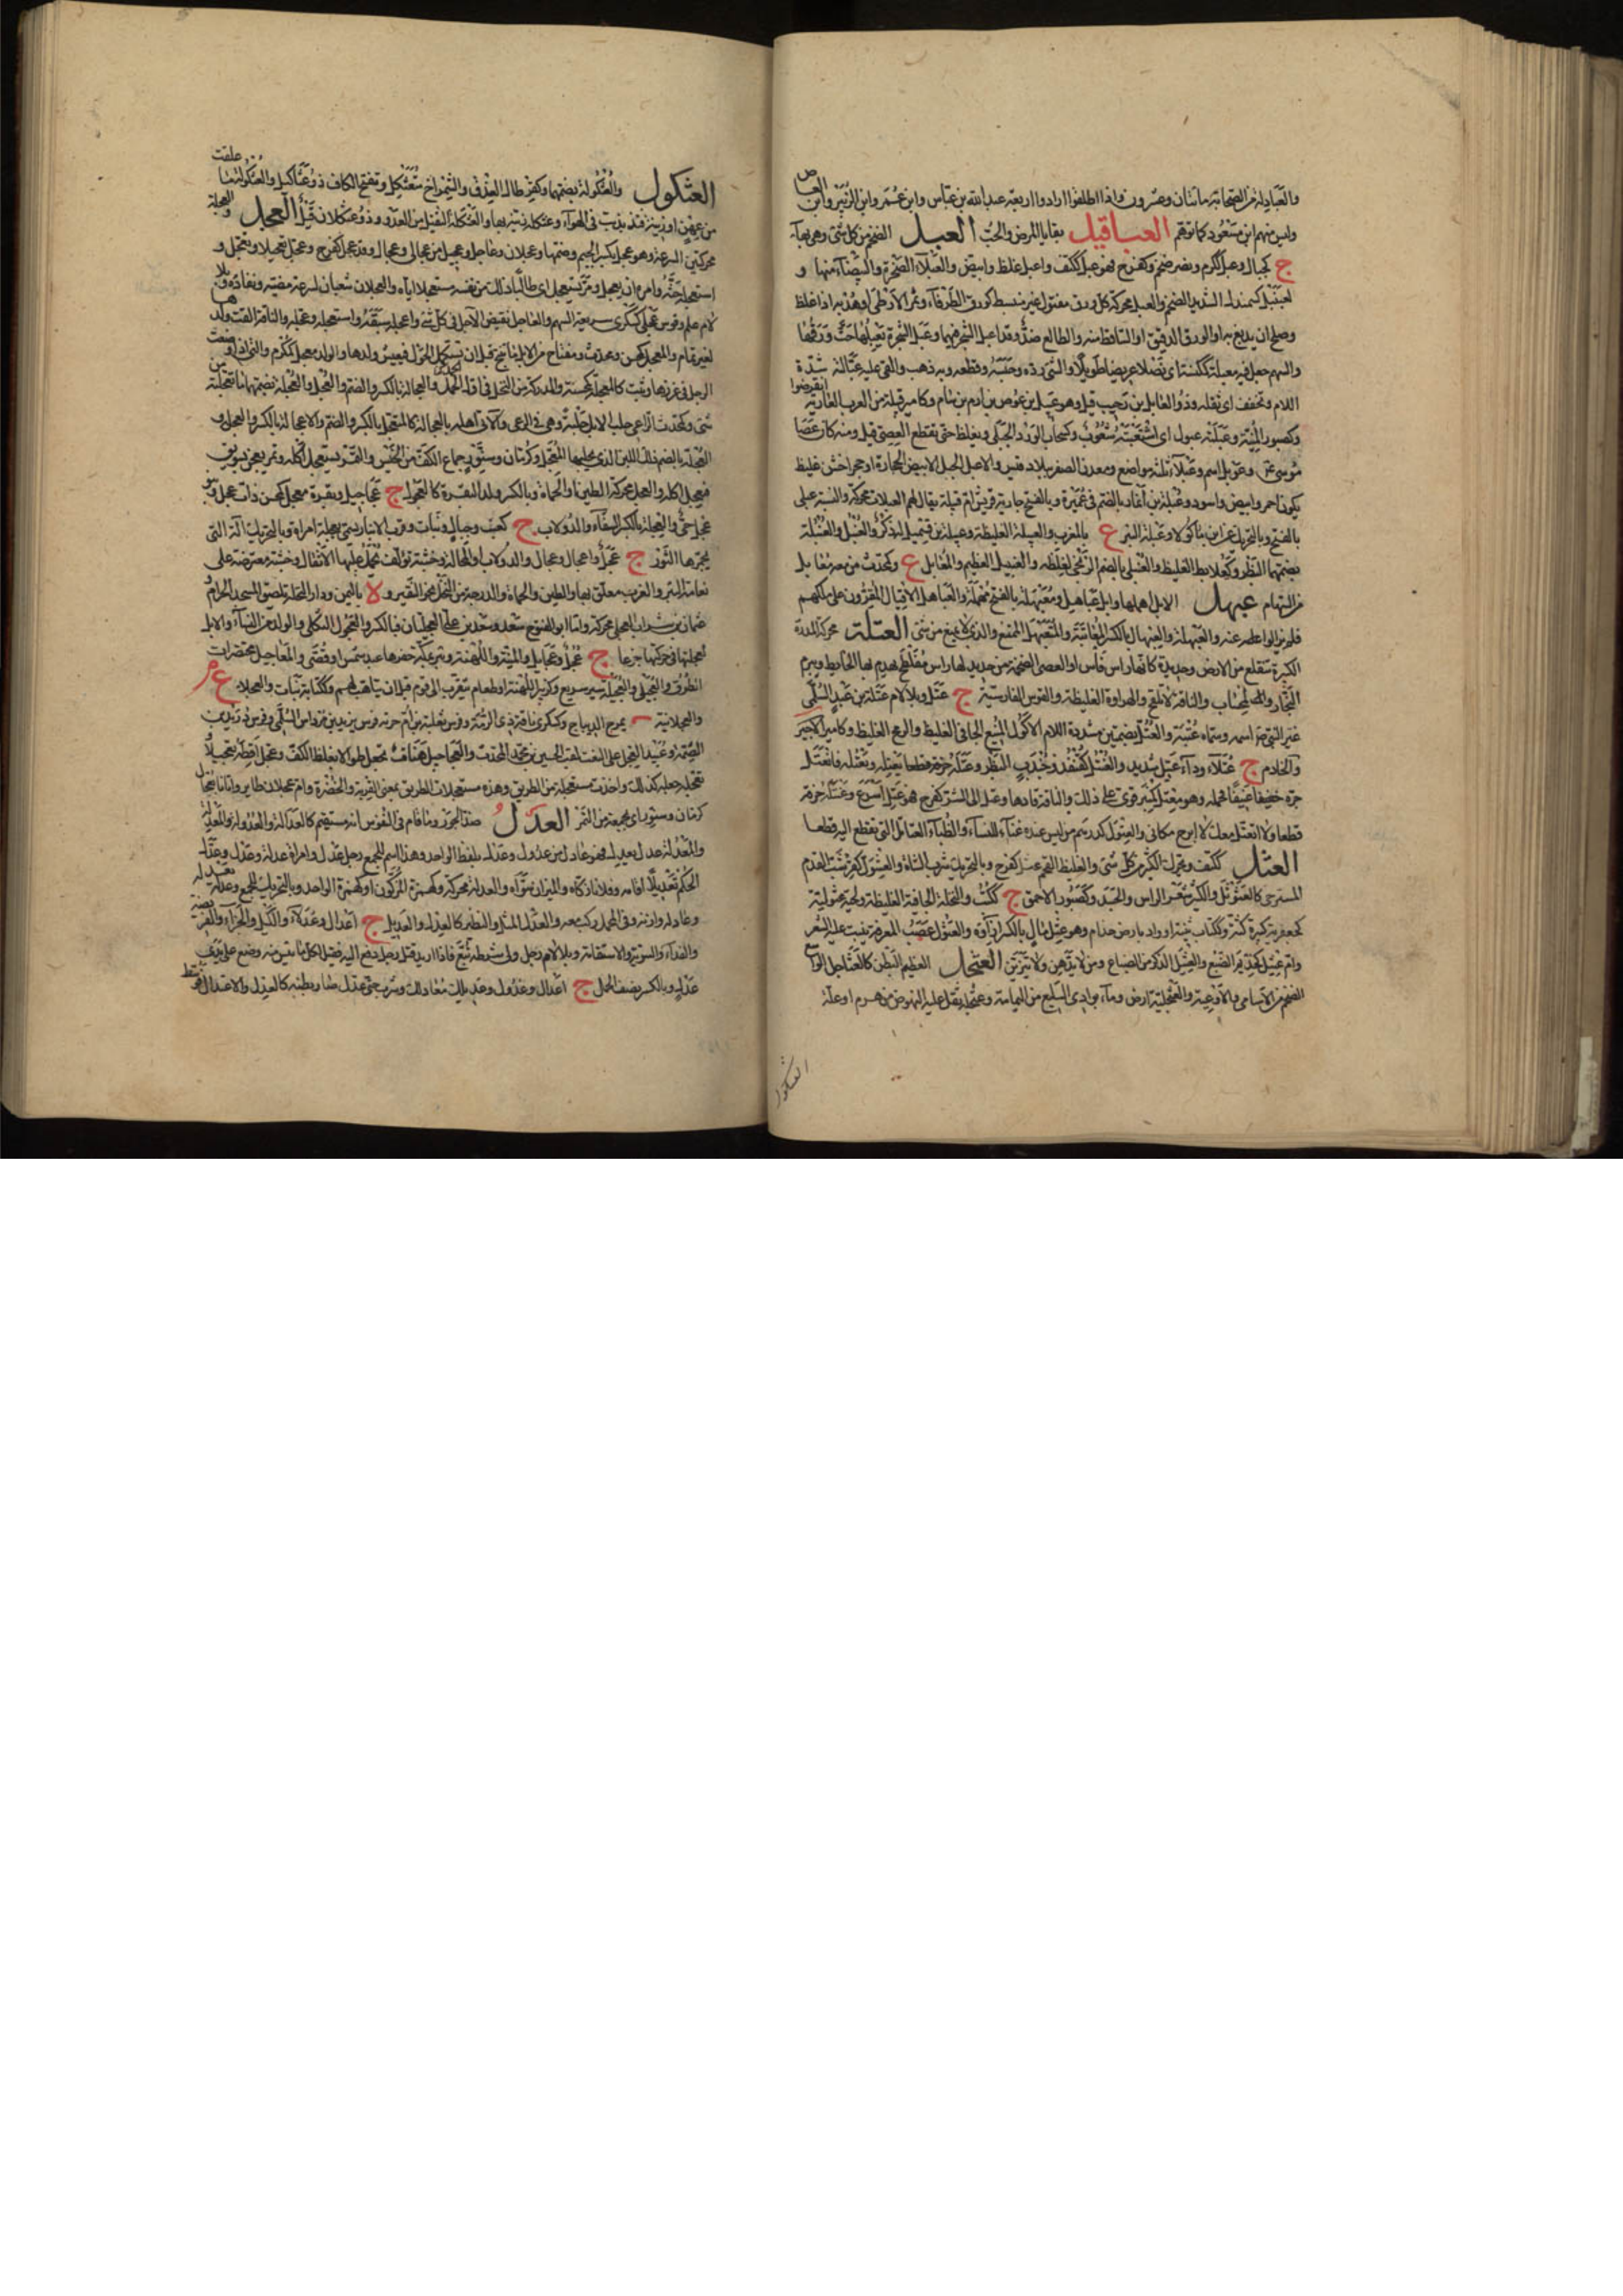 والعبادلة من الصحابة مائتان وعشرون واذا اطلقوا ارادوا اربعة عبد الله بن عباس وابن عمر وابن الزبير وابن العاص
وليس منهم ابن مسعود كما توهم العباقيل بقايا المرض والحب العبل الضخم من كل شئ وهى بهاء
ج كجبال وعبل ككرم ونصر ضخم وكفرح فهو عبل ككتف واعبل غلظ وابيض والعبلاء الصخرة والبيضاء منها و
كسمندل الشديد الضخم والعبل محركة كل ورق مفتول غير منبسط كورق الطرفاء وثمر الارطى او هدبه اذا غلظ
وصلح ان يدبغ به او الورق الدقيق او الساقط منه والطالع ضد وقد اعبل الشجر فيهما وعبل الشجرة يعبلها حت ورقها
والسهم جعل فيه معبلة كمكنسة اى نصلا عريضا طويلا والشئ رده وحبسه وقطعه وبه ذهب والقى عليه عبالته شدة
اللام وتخفف اى ثقله وذو العابل بن رحيب قيل وهو عبيل بن عوص بن ارم بن سام وكامير قبيلة من العرب العاربة انقرضوا
وكصبور المنية وعبلته عبول اى اشتعبته شعوب وكسحاب الورد الجبلى ويغلظ حتى تقطع العصى قيل ومنه كان عصا
موسى وعوبل اسم وعبلاء ثلثة مواضع ومعدن الصفر ببلاد قيس والاعبل الجبل الابيض الحجارة او حجر اخشن غليظ
يكون احمر وابيض واسود وعبلة بن انمار بالضم فى عميرة وبالفتح جارية قريش ام قبيلة يقال لهم العبلات محركة والنسبة عبلى
بالفتح وبالتحريك عن ابن ماكولا وعبلة البئر ع بالمغرب والعبيلة الغليظة وعبيلة بن قشميل له ذكر والعنبل والعنبلة
بضمهما البظر وكعلابط الغليظ والعنبلى بالضم الزنجى لغلظه والعنبيل العظيم والمعابل ع وكمحدث من معه معابل
من السهام عبهل الابل اهملها وابل عباهيل ومعبهلة بالفتح مهملة والعباهل الاقيال المقرون على ملكهم
فلم يزالوا عنه والعبهلة والعيهال بالكسر المعاتبة والمتعبهل الممتنع والذى لا يمنع من شئ العتلة محركة المدرة
الكبيرة تنقلع من الارض وحديدة كانها راس فاس او العصى الضخمة من حديد لها راس مفلطح يهدم بها الحائط وبيرم
النجار والمجتاب والناقة لا تلقح والهراوة الغليظة والقوس الفارسية ج عتل وبلا لام عتلة بن عبد السلمى
غير النبى صم اسمه وسماه عتبة والعتل بضمتين مشددة اللام الاكول المنيع الجافى الغليظ والرمح الغليظ وكامير الاجير
والخادم ج عتلاء وداء عتيل شديد والعنتل كقنفذ وجندب البظر وعتله خرقه قطعا يعتله ويعتله فانعتل
جره جره عنيفا فحمله وهو معتل كمنبر قوى على ذلك والناقة قادها وعتل الى الشر كفرح فهو عتل اسرع وعنتله خرقه
قطعا ولا انعتل معك لا ابرح مكانى والعتول كدرهم من ليس عنده غناء للنساء والظباء العناتل التى تقطع الدم قطعا
العثل ككتف ويحرك الكثير من كل شئ والغليظ الفخم عثل كفرح وبالتحريك ثرب الشاة والعثول كقرشب الفدم
المسترخى كالعثوثل والكثير شعر الراس والجسد وكصبور الاحمق ج ككتب والنخلة الجافية الغليظة ولحية عثولية
كجعفرية كبيرة كثة وككتاب ثنية او واد بارض جذام وهو عثل مال بالكسر ازاؤه والعثول عصب المعرفة ينبت عليه الشعر
وام عثيل كحذيم الضبع والعثيل الذكر من الضباع ومن لا يدهن ولا يتزين العثجل العظيم البطن كالعثاجل الواسع
الضخم من الاساقى والاوعية والعثجلية ارض وماء بوادى السليع من اليمامة وعثجل ثقل عليه النهوض من هرم او علة
العثكول
العثكول والعثكولة بضمهما وكقرطاس العذق والشمراخ متعثكل وتفتح الكاف ذو عثاكيل والعثكولة ما علقت
من عهن او زينة فتذبذبت فى الهواء وعثكله زينه بها والعثكلة الثقيل من العدو وذو عثكلان قيل العجل والعجلة
محركتين السرعة وهو عجل بكسر الجيم وضمها وعجلان وعاجل وعجيل من عجالى وعجال وقد عجل كفرح وعجل تعجيلا وتعجل و
استعجله حثه وامره ان يعجل ومر يستعجل اى طالبا ذلك من نفسه متعجلا اياه والعجلان شعبان لسرعة مضيه ونفاذه وبلا
لام علم وقوس عجلى كسكرى سريعة السهم والعاجل نقيض الآجل فى كل شئ واعجله سبقه واستعجله وعجله والناقة القت ولدها
لغير تمام والمعجل كمحسن ومحدث ومفتاح من الابل ما تنتج قبل ان تستكمل الحول فيعيش ولدها والولد معجل كمكرم والتى اذا وضعت
الرجل فى غرزها وثبت كالمعجلة كمحسنة والمدركة من النخل فى اول الحمل والعجالة بالكسر والضم والعجل والعجلة بضمهما ما تعجلته من
شئ وكمحدث الراعى حلب الابل حلبة وهى فى الرعى والآتى اهله بالعجالة كالمتعجل بالكسر والضم والاعجالة بالكسر والعجل و
العجلة بالضم ذلك اللبن الذى يحلبها المعجل وكرمان وسنور جماع الكف من الحيس والتمر يستعجل اكله وتمر يعجن بسويق
فيعجل اكله والعجل محركة الطين او الحماة وبالكسر ولد البقرة كالعجول ج عجاجيل وبقرة معجل كمحسن ذات عجل وبنو
عجل حى والعجلة بالكسر السقاء والدولاب ج كعنب وجبال ونبات وقرب الانبار سمى بعجلة امراة وبالتحريك الة التى
يجرها الثور ج عجل واعجال وعجال والدولاب او المحالة وخشبة تؤلف تحمل عليها الاثقال وخشبة معترضة على
نعامة البئر والغرب معلق بها والطين والحماة والدرجة من النخل نحو النقير و لا باليمن ودار العجلة بلصق المسجد الحرام
محركة ولنا ابو الفتوح سعد وسعد بن على العجليان فبالكسر والعجول الثكلى والواله من النساء والابل
لعجلتها فى حركتها جزعا ج عجل وعجائل والمنية واللهنة وبئر بمكة حفرها عبد شمس او قصى والمعاجيل مختصرات
الطرق والعجلى والعجيلة سير سريع وكزبير اللهنة او طعام يتقرب الى قوم قبل ان يتاهب لهم وككتابة نبات والعجلاء ع م
والعجلانية بمرج الديباج وكسكرى ناقة ذى الرمة وفرس ثعلبة بن ام حزنة فرس يزيد بن مرداس السلمى وفرس دريد بن
الصمة وعبيد العجل على النعت لقب الحسين بن محمد المحدث والعجاجيل هنات تجعل طوالا بغلظ الكف وعجل اقطه تعجيلا
وتعجله جعله كذلك واخذت مستعجلة من الطريق وهذه مستعجلات الطريق بمعنى القربة والخضرة وام عجلان طاير واتانا بعجال
كرمان وسنور اى بجمعة من التمر العدل ضد الجور وما قام فى النفوس انه مستقيم كالعدالة والعدولة والمعدلة
والمعدلة عدل يعدل فهو عادل من عدول وعدل بلفظ الواحد وهذا اسم للجمع رجل عدل وامراة عدلة وعدل وعدل
الحكم تعديلا اقامه وفلانا زكاه والميزان سواه والعدلة محركة وكهمزة المزكون او كهمزة الواحد وبالتحريك للجمع وعدله يعدله
وعادله وازنه وفى المحمل ركب معه والعدل المثل والنظير كالعدل والعديل ج اعدال وعدلاء والكيل والجزاء والفريضة
والفداء والسوية والاستقامة وبلا لام رجل ولى شرطة تبع فاذا اريد قتل رجل دفع اليه فقيل لكل ما يئس منه وضع على يدى
عدل وبالكسر نصف الحمل ج اعدال وعدول وعديلك معادلك وشرب حتى عدل صار بطنه كالعدل والاعتدال توسط